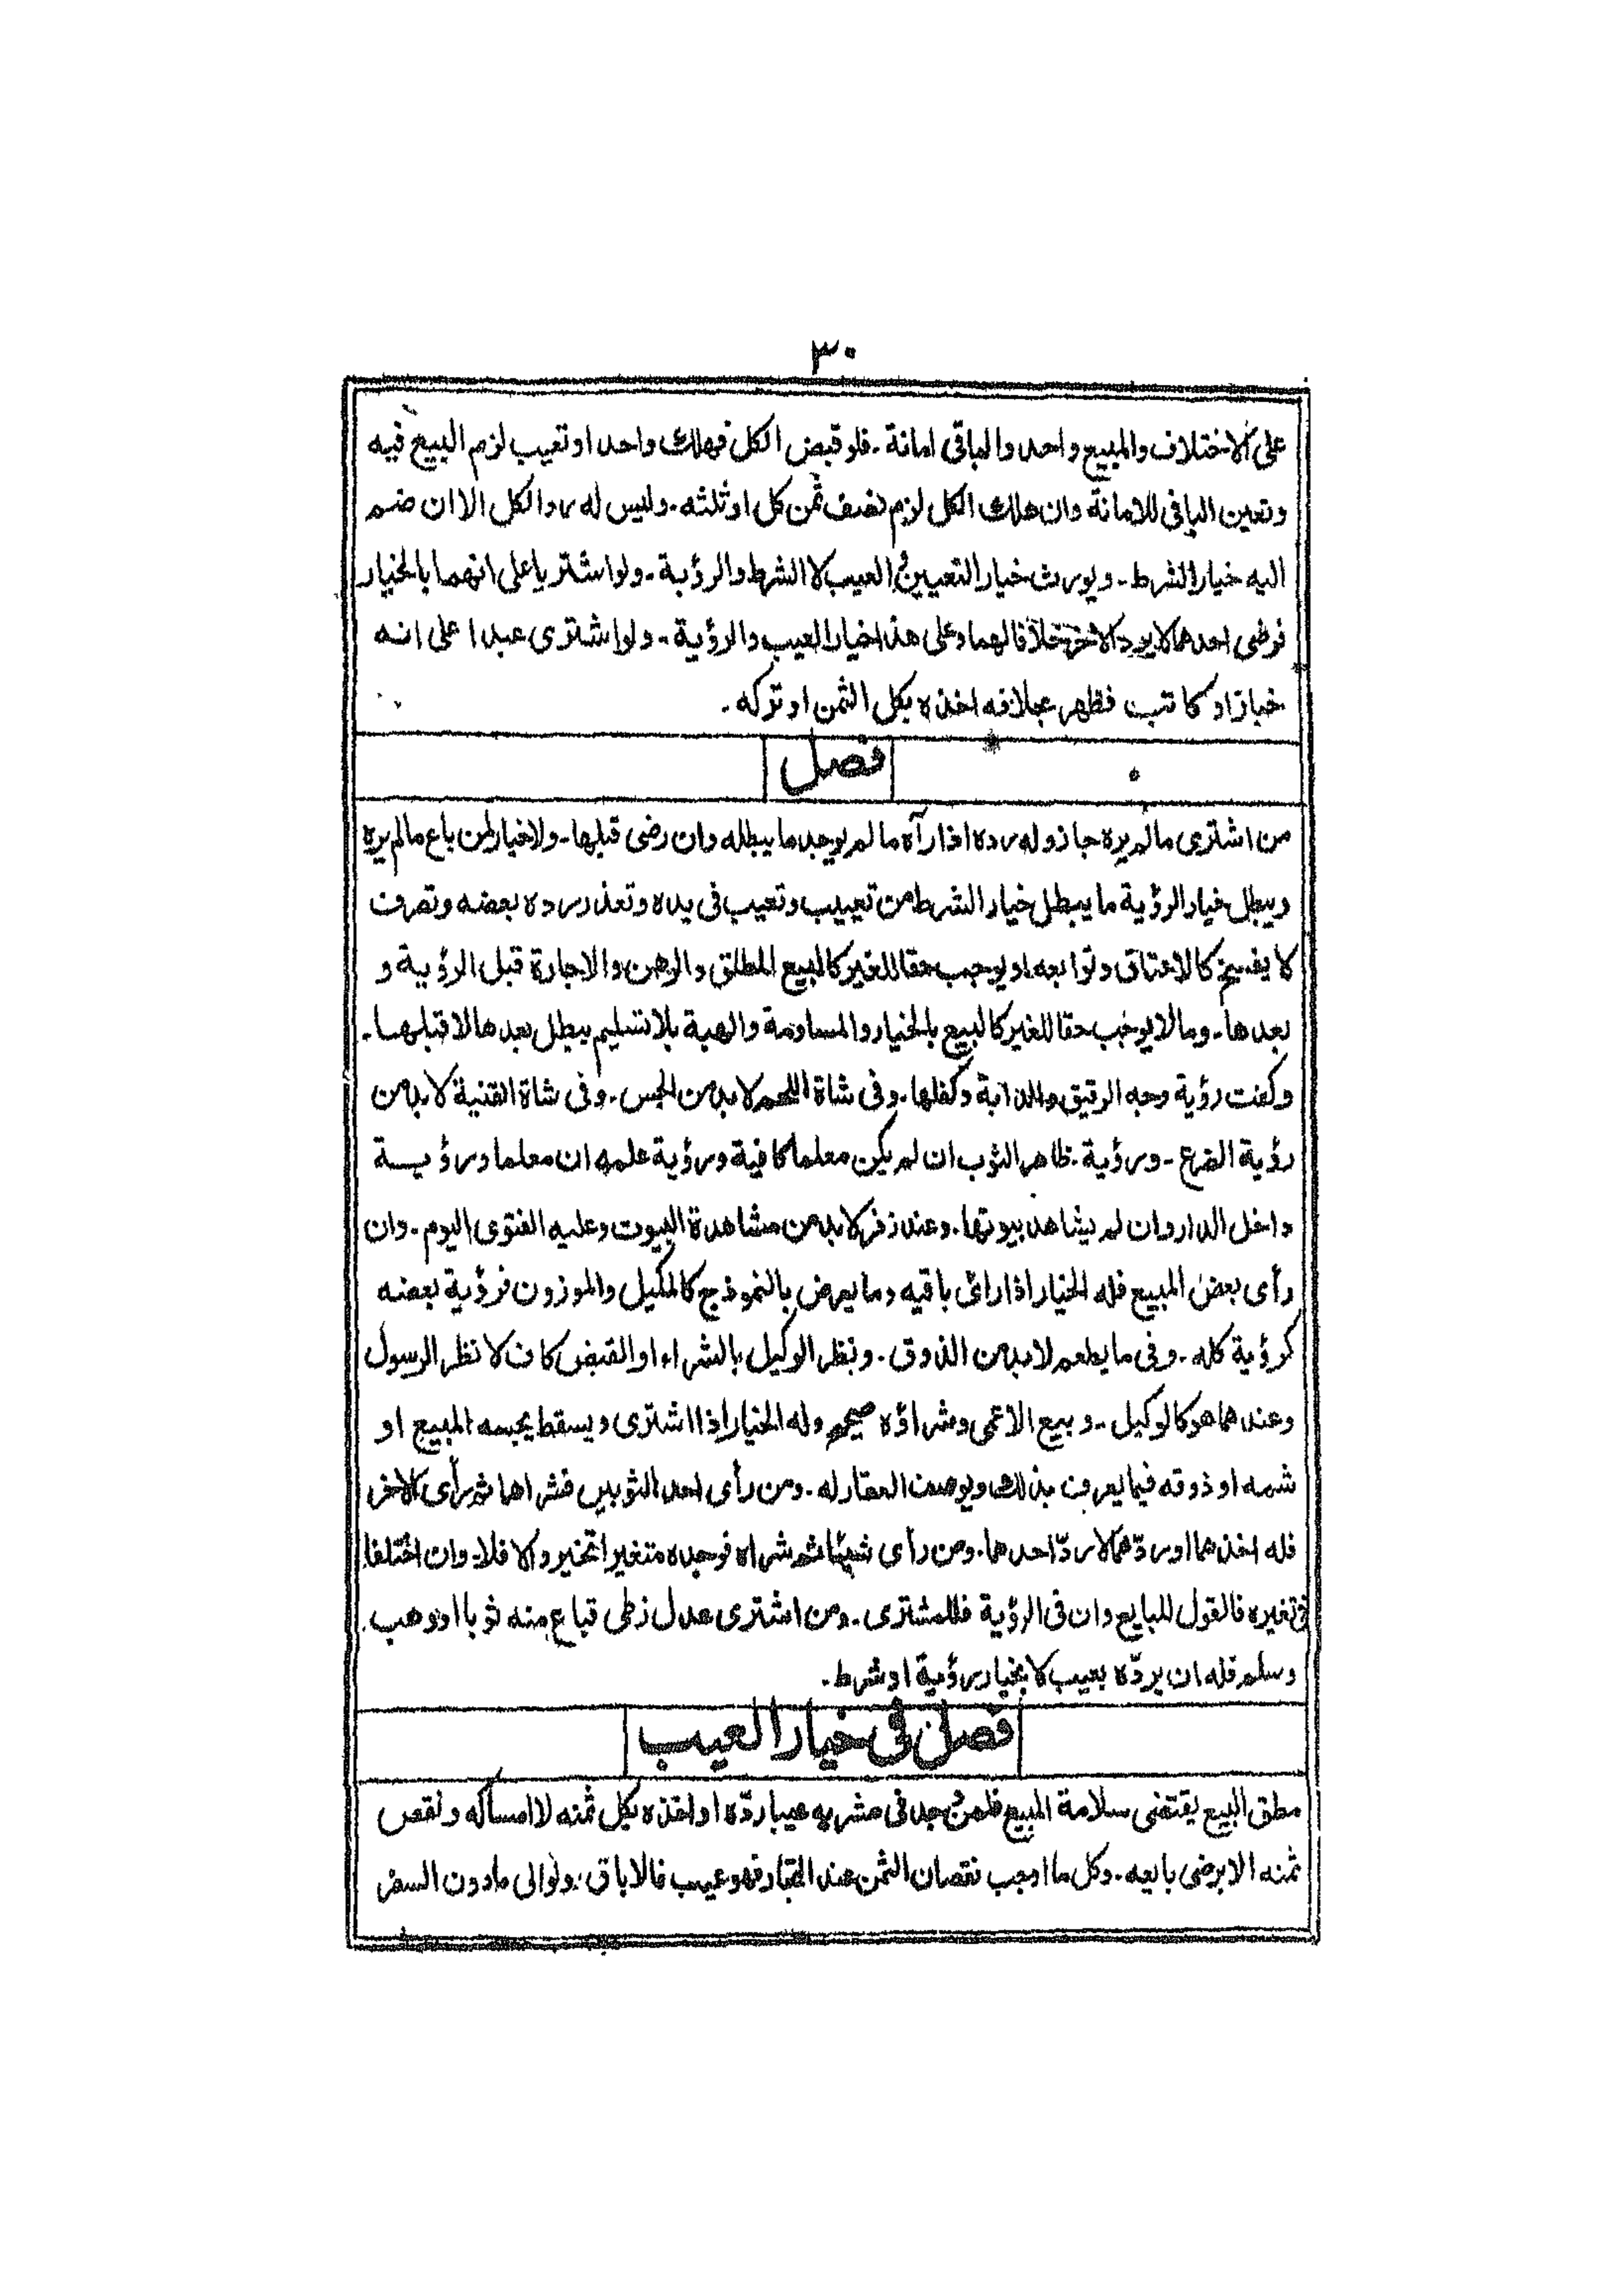 ٣٠
على الاختلاف والمبيع واحد والباقى امانة ـ فلو قبض الكل فهلك واحد او تعيب لزم البيع فيه
وتعين الباقى للامانة وان هلك الكل لزم نصف ثمن كل او ثلثه ـ وليس له رد الكل الا ان ضم
اليه خيار الشرط ـ ويورث خيار التعيين والعيب لا الشرط والرؤية ـ ولو اشتريا على انهما بالخيار
فرضى احدهما لا يرد الاخر خلافا لهما وعلى هذا خيار العيب والرؤية ـ ولو اشترى عبدا على انه
خباز او كاتب فظهر بخلافه اخذه بكل الثمن او تركه ـ
فصل
من اشترى مالم يره جاز وله رده اذا رآه ما لم يوجد ما يبطله وان رضى قبلها ـ ولا خيار لمن باع مالم يره
ويبطل خيار الرؤية ما يبطل خيار الشرط من تعييب وتعيب فى يده وتعذر رده بعضه وتصرف
لا يفسخ كالاعتاق وتوابعه او يوجب حقا للغير كالمبيع المطلق والرهن والاجارة قبل الرؤية و
بعدها ـ ومالا يوجب حقا للغير كالبيع بالخيار والمساومة والهبة بلا تسليم يبطل بعدها لا قبلها ـ
وكفت رؤية وجه الرقيق والدابة وكفلها ـ وفى شاة اللحم لابد من الجس ـ وفى شاة القنية لابد من
رؤية الضرع ـ ورؤية ظاهر الثوب ان لم يكن معلما كافية ورؤية علمه ان معلما ورؤية
داخل الدار وان لم يشاهد بيوتها ـ وعند زفر لابد من مشاهدة البيوت وعليه الفتوى اليوم ـ وان
رأى بعض المبيع فله الخيار اذا رائ باقيه وما يعرض بالنموذج كالمكيل والموزون فرؤية بعضه
كرؤية كله ـ وفى ما يطعم لابد من الذوق ـ ونظر الوكيل بالشراء او القبض كاف لا نظر الرسول
وعندهما هو كالوكيل ـ وبيع الاعمى وشراؤه صحيح وله الخيار اذا اشترى ويسقط بجسه المبيع او
شمه او ذوقه فيما يعرف بذلك وبوصف العقار له ـ ومن رأى احد الثوبين فشراهما ثم رأى الاخر
فله اخذهما او ردّهما لا ردّ احدهما ـ ومن رأى شيئا ثم شراه فوجده متغيرا تخير والا فلا ـ وان اختلفا
فى تغيره فالقول للبايع وان فى الرؤية فللمشترى ـ ومن اشترى عدل زطى فباع منه ثوبا او وهب
وسلم فله ان يردّه بعيب لا بخيار رؤية او شرط ـ
فصل فى خيار العيب
مطلق البيع يقتضى سلامة المبيع فلمن وجد فى مشريه عيبا ردّه او اخذه بكل ثمنه لا امساكه ونقص
ثمنه الا برضى بايعه ـ وكل ما اوجب نقصان الثمن عند التجار فهو عيب فالاباق ولو الى مادون السفر